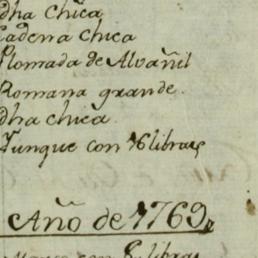 dha chica
Cadena chica
Plomada de Alvañil
Romana grande.
dha chica.
Yunque con 76 libras
Año de 1769,,
con 8 libras